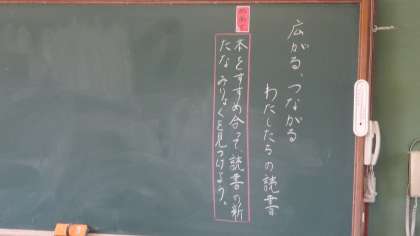 広がる、つながる
わたしたちの読書
めあて
本をすすめ合って、読書の新
たな みりょくを見つけよう。